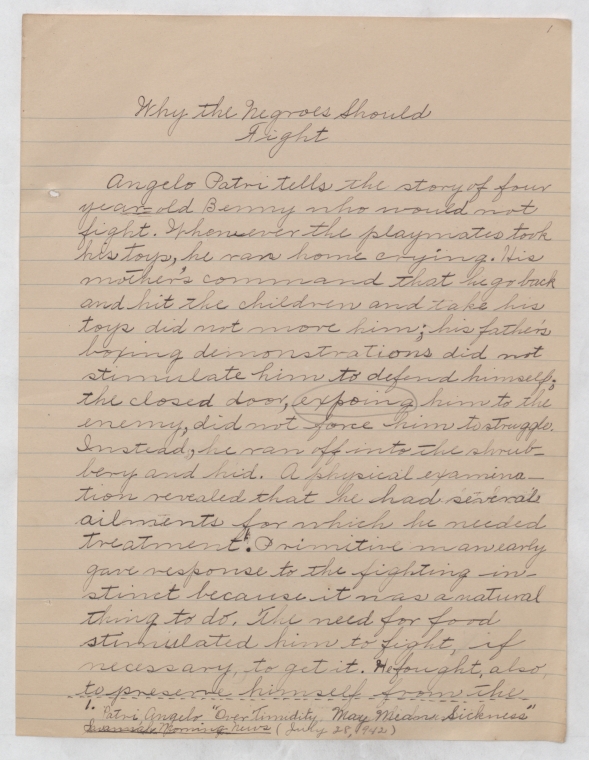 1
Why the Negroes Should
Fight
Angelo Patri tells the story of four
year-old Benny who would not
fight. Whenever the playmates took
his toys, he ran home crying. His
mother's command that he go back
and hit the children and take his
toys did not move him; his father's
boxing demonstrations did not
stimulate him to defend himself;
the closed door, expoing him to the
enemy, did not force him to struggle.
Instead, he ran off into the shrub-
bery and hid. A physical examina-
tion revealed that he had several
ailments for which he needed
treatment.1 Primitive man early
gave response to the fighting in-
stinct because it was a natural
thing to do. The need for food
stimulated him to fight, if
necessary, to get it. He fought, also,
to preserve himself from the
1. Patri, Angelo "Over Timidity May Mean Sickness"
Morning News (July 28, 1942)